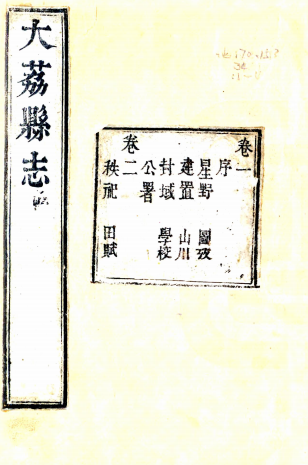 大荔縣志
卷一
序
星野 圖攷
建置 山川
封域 學校
公署
卷二
秩祀 田賦